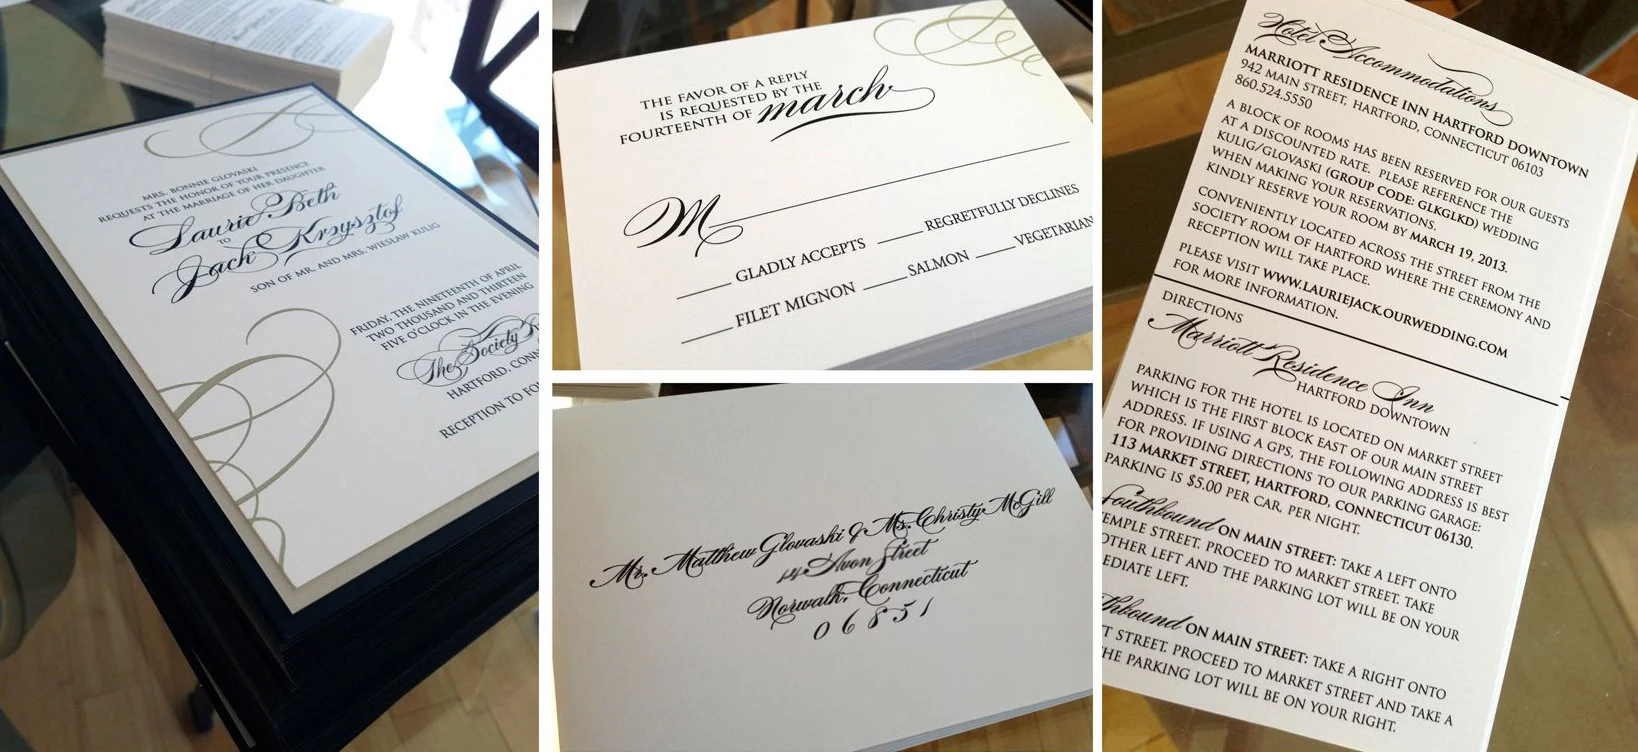 MRS. BONNIE GLOVASKI
REQUESTS THE HONOR OF YOUR PRESENCE
AT THE MARRIAGE OF HER DAUGHTER
Laurie Beth
TO
Jack Krzysztof
SON OF MR. AND MRS. WIESLAW KULIG
FRIDAY, THE NINETEENTH OF APRIL
TWO THOUSAND AND THIRTEEN
FIVE O'CLOCK IN THE EVENING
The Society
HARTFORD, CONN
RECEPTION TO FO
THE FAVOR OF A REPLY
IS REQUESTED BY THE
FOURTEENTH OF march
M
GLADLY ACCEPTS REGRETFULLY DECLINES
FILET MIGNON SALMON VEGETARIAN
Mr. Matthew Glovaski & Ms. Christy McGill
14 Avon Street
Norwalk, Connecticut
06851
Hotel Accommodations
MARRIOTT RESIDENCE INN HARTFORD DOWNTOWN
942 MAIN STREET, HARTFORD, CONNECTICUT 06103
860.524.5550
A BLOCK OF ROOMS HAS BEEN RESERVED FOR OUR GUESTS
AT A DISCOUNTED RATE. PLEASE REFERENCE THE
KULIG/GLOVASKI (GROUP CODE: GLKGLKD) WEDDING
WHEN MAKING YOUR RESERVATIONS.
KINDLY RESERVE YOUR ROOM BY MARCH 19, 2013.
CONVENIENTLY LOCATED ACROSS THE STREET FROM THE
SOCIETY ROOM OF HARTFORD WHERE THE CEREMONY AND
RECEPTION WILL TAKE PLACE.
PLEASE VISIT WWW.LAURIEJACK.OURWEDDING.COM
FOR MORE INFORMATION.
DIRECTIONS
Marriott Residence Inn
HARTFORD DOWNTOWN
PARKING FOR THE HOTEL IS LOCATED ON MARKET STREET
WHICH IS THE FIRST BLOCK EAST OF OUR MAIN STREET
ADDRESS. IF USING A GPS, THE FOLLOWING ADDRESS IS BEST
FOR PROVIDING DIRECTIONS TO OUR PARKING GARAGE:
113 MARKET STREET, HARTFORD, CONNECTICUT 06130.
PARKING IS $5.00 PER CAR, PER NIGHT.
Southbound ON MAIN STREET: TAKE A LEFT ONTO
EMPLE STREET. PROCEED TO MARKET STREET. TAKE
OTHER LEFT AND THE PARKING LOT WILL BE ON YOUR
EDIATE LEFT.
thbound ON MAIN STREET: TAKE A RIGHT ONTO
T STREET. PROCEED TO MARKET STREET AND TAKE A
HE PARKING LOT WILL BE ON YOUR RIGHT.